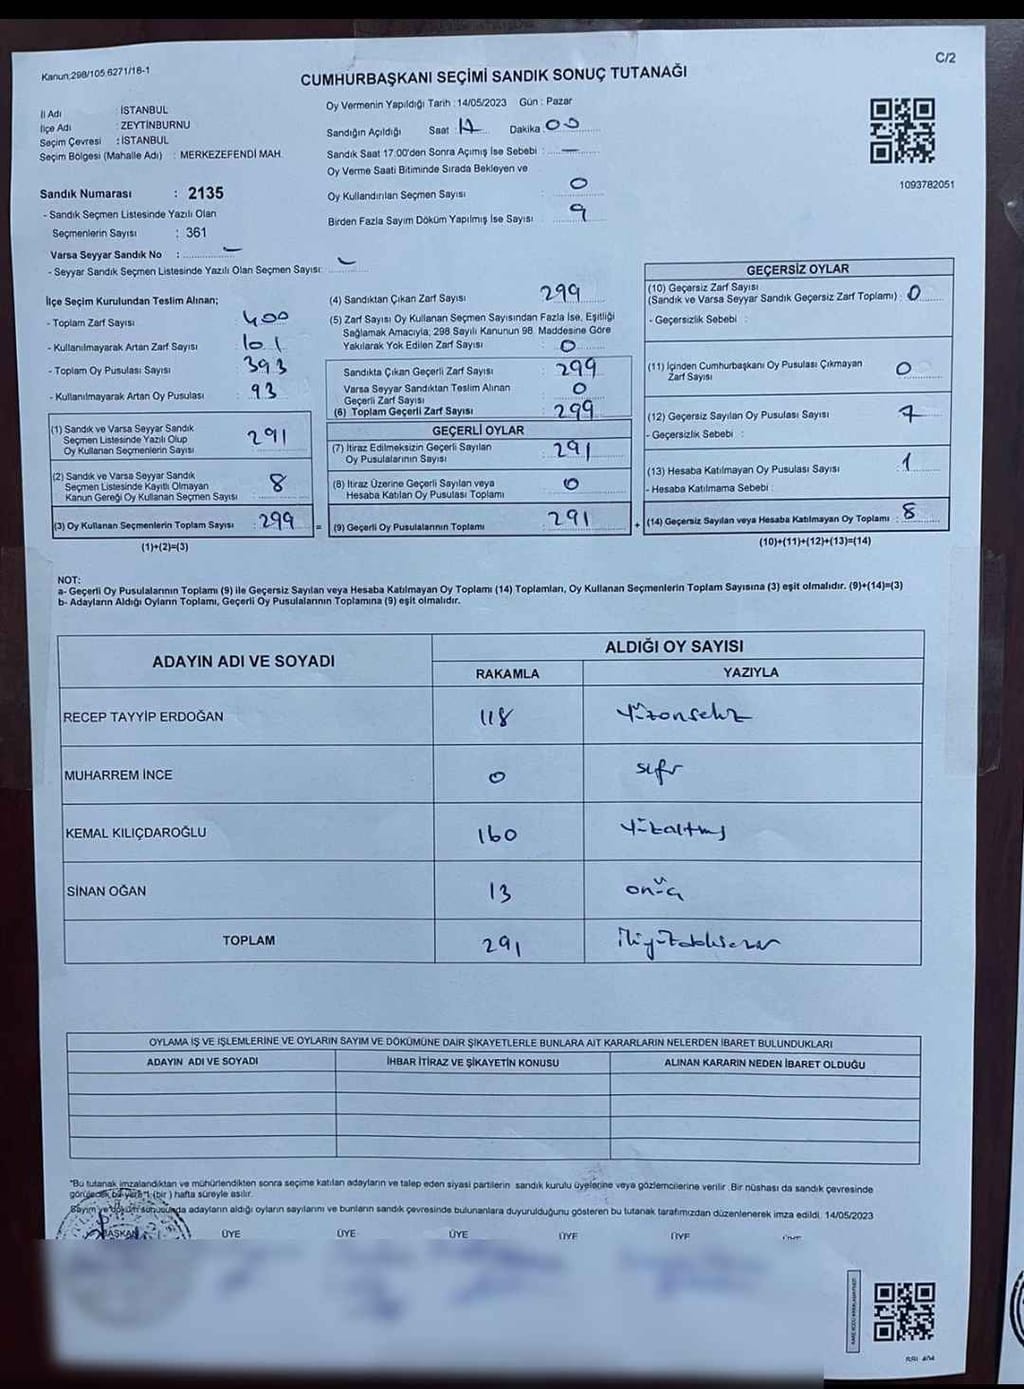 Kanun;298/105,6271/18-1
C/2
CUMHURBAŞKANI SEÇİMİ SANDIK SONUÇ TUTANAĞI
İl Adı : İSTANBUL
İlçe Adı : ZEYTİNBURNU
Seçim Çevresi : İSTANBUL
Seçim Bölgesi (Mahalle Adı) : MERKEZEFENDİ MAH.
Oy Vermenin Yapıldığı Tarih : 14/05/2023 Gün : Pazar
Sandığın Açıldığı Saat : 17 Dakika : 00
Sandık Saat 17:00'den Sonra Açımış İse Sebebi : —
Oy Verme Saati Bitiminde Sırada Bekleyen ve
Oy Kullandırılan Seçmen Sayısı : 0
Birden Fazla Sayım Döküm Yapılmış İse Sayısı : 9
1093782051
Sandık Numarası : 2135
- Sandık Seçmen Listesinde Yazılı Olan
Seçmenlerin Sayısı : 361
Varsa Seyyar Sandık No : —
- Seyyar Sandık Seçmen Listesinde Yazılı Olan Seçmen Sayısı: —
İlçe Seçim Kurulundan Teslim Alınan;
- Toplam Zarf Sayısı : 400
- Kullanılmayarak Artan Zarf Sayısı : 101
- Toplam Oy Pusulası Sayısı : 393
- Kullanılmayarak Artan Oy Pusulası : 93
(1) Sandık ve Varsa Seyyar Sandık
Seçmen Listesinde Yazılı Olup
Oy Kullanan Seçmenlerin Sayısı : 291
(2) Sandık ve Varsa Seyyar Sandık
Seçmen Listesinde Kayıtlı Olmayan
Kanun Gereği Oy Kullanan Seçmen Sayısı : 8
(3) Oy Kullanan Seçmenlerin Toplam Sayısı : 299
(1)+(2)=(3)
(4) Sandıktan Çıkan Zarf Sayısı : 299
(5) Zarf Sayısı Oy Kullanan Seçmen Sayısından Fazla İse, Eşitliği
Sağlamak Amacıyla; 298 Sayılı Kanunun 98. Maddesine Göre
Yakılarak Yok Edilen Zarf Sayısı : 0
Sandıkta Çıkan Geçerli Zarf Sayısı : 299
Varsa Seyyar Sandıktan Teslim Alınan
Geçerli Zarf Sayısı : 0
(6) Toplam Geçerli Zarf Sayısı : 299
GEÇERLİ OYLAR
(7) İtiraz Edilmeksizin Geçerli Sayılan
Oy Pusulalarının Sayısı : 291
(8) İtiraz Üzerine Geçerli Sayılan veya
Hesaba Katılan Oy Pusulası Toplamı : 0
= (9) Geçerli Oy Pusulalarının Toplamı : 291
GEÇERSİZ OYLAR
(10) Geçersiz Zarf Sayısı
(Sandık ve Varsa Seyyar Sandık Geçersiz Zarf Toplamı) : 0
- Geçersizlik Sebebi :
(11) İçinden Cumhurbaşkanı Oy Pusulası Çıkmayan
Zarf Sayısı : 0
(12) Geçersiz Sayılan Oy Pusulası Sayısı : 7
- Geçersizlik Sebebi :
(13) Hesaba Katılmayan Oy Pusulası Sayısı : 1
- Hesaba Katılmama Sebebi :
+ (14) Geçersiz Sayılan veya Hesaba Katılmayan Oy Toplamı : 8
(10)+(11)+(12)+(13)=(14)
NOT:
a- Geçerli Oy Pusulalarının Toplamı (9) ile Geçersiz Sayılan veya Hesaba Katılmayan Oy Toplamı (14) Toplamları, Oy Kullanan Seçmenlerin Toplam Sayısına (3) eşit olmalıdır. (9)+(14)=(3)
b- Adayların Aldığı Oyların Toplamı, Geçerli Oy Pusulalarının Toplamına (9) eşit olmalıdır.
ADAYIN ADI VE SOYADI
ALDIĞI OY SAYISI
RAKAMLA YAZIYLA
RECEP TAYYİP ERDOĞAN 118 Yüzonsekiz
MUHARREM İNCE 0 sıfır
KEMAL KILIÇDAROĞLU 160 Yüzaltmış
SİNAN OĞAN 13 onüç
TOPLAM 291 İkiyüzdoksanbir
OYLAMA İŞ VE İŞLEMLERİNE VE OYLARIN SAYIM VE DÖKÜMÜNE DAİR ŞİKAYETLERLE BUNLARA AİT KARARLARIN NELERDEN İBARET BULUNDUKLARI
ADAYIN ADI VE SOYADI İHBAR İTİRAZ VE ŞİKAYETİN KONUSU ALINAN KARARIN NEDEN İBARET OLDUĞU
"Bu tutanak imzalandıktan ve mühürlendikten sonra seçime katılan adayların ve talep eden siyasi partilerin sandık kurulu üyelerine veya gözlemcilerine verilir. Bir nüshası da sandık çevresinde
görülecek bir yere "1 (bir ) hafta süreyle asılır.
Sayım ve döküm sonucunda adayların aldığı oyların sayılarını ve bunların sandık çevresinde bulunanlara duyurulduğunu gösteren bu tutanak tarafımızdan düzenlenerek imza edildi. 14/05/2023
BAŞKAN ÜYE ÜYE ÜYE ÜYE ÜYE ÜYE